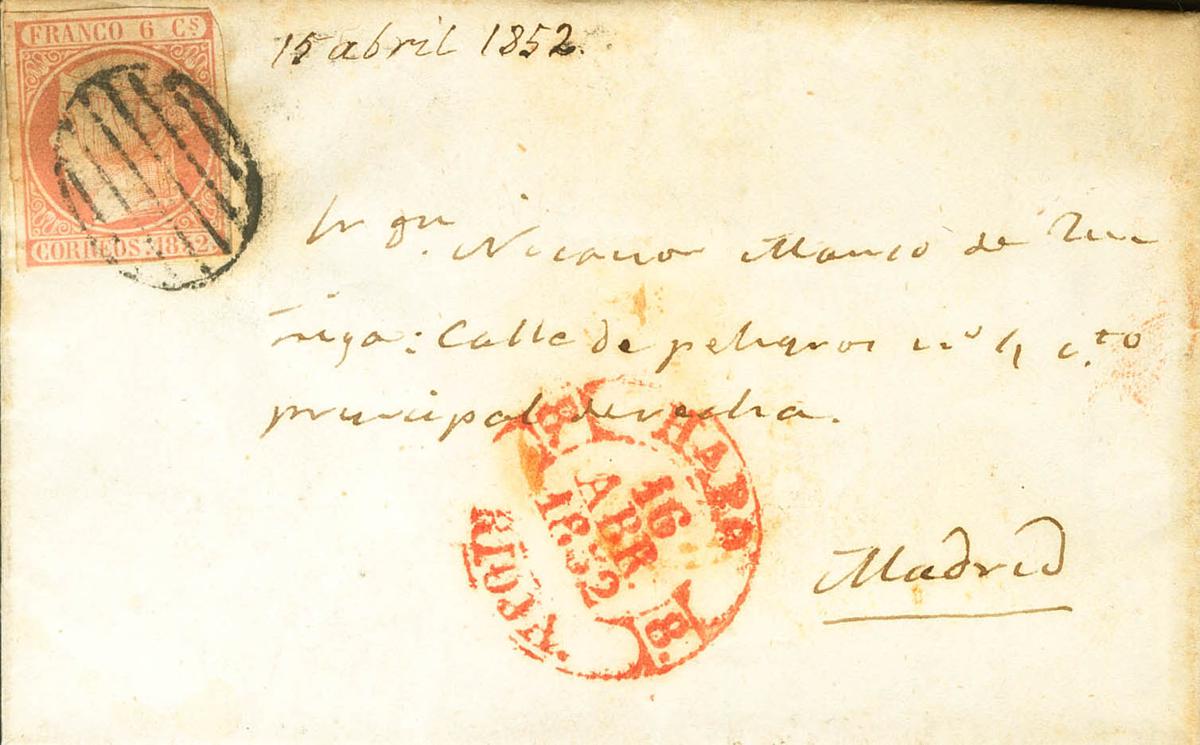 FRANCO 6 Cs
15 abril 1852.
CORREOS. 1852.
Nicanor Manso de Zu
ñiga: Calle de peligros nº 4 cto
principal derecha.
HARO
16
ABR.
1852
RIOJA.
8.
Madrid